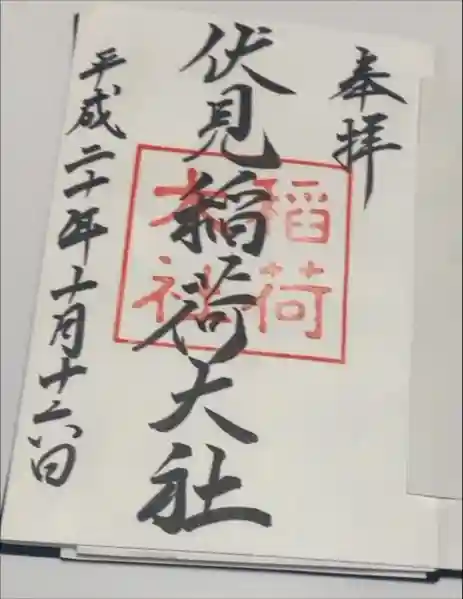 奉拝
伏見稲荷大社
稲荷
大社
平成二十年十月十六日